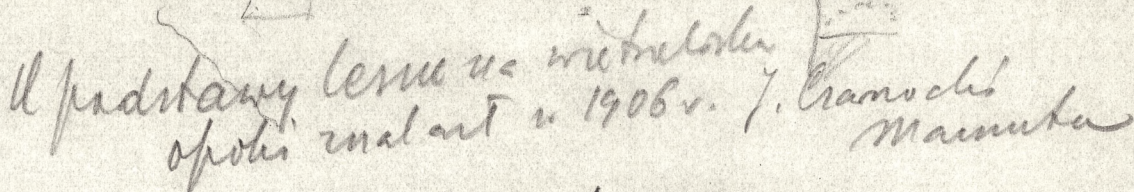 U podstawy lessu na
opoki znalazł w 1906 r. J. Czarnocki
Mamuta